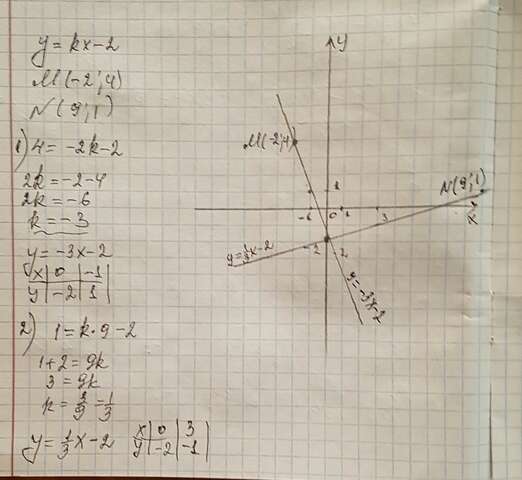 y = kx - 2
M(-2; 4)
N(9; 1)
1) 4 = -2k - 2
2k = -2 - 4
2k = -6
k = -3
y = -3x - 2
x | 0 | -1
y | -2 | 1
2) 1 = k · 9 - 2
1 + 2 = 9k
3 = 9k
k = 3/9 = 1/3
y = 1/3 x - 2
x | 0 | 3
y | -2 | -1
y
M(-2; 4)
N(9; 1)
0
3
x
-2
y = 1/3 x - 2
y = -3x - 2